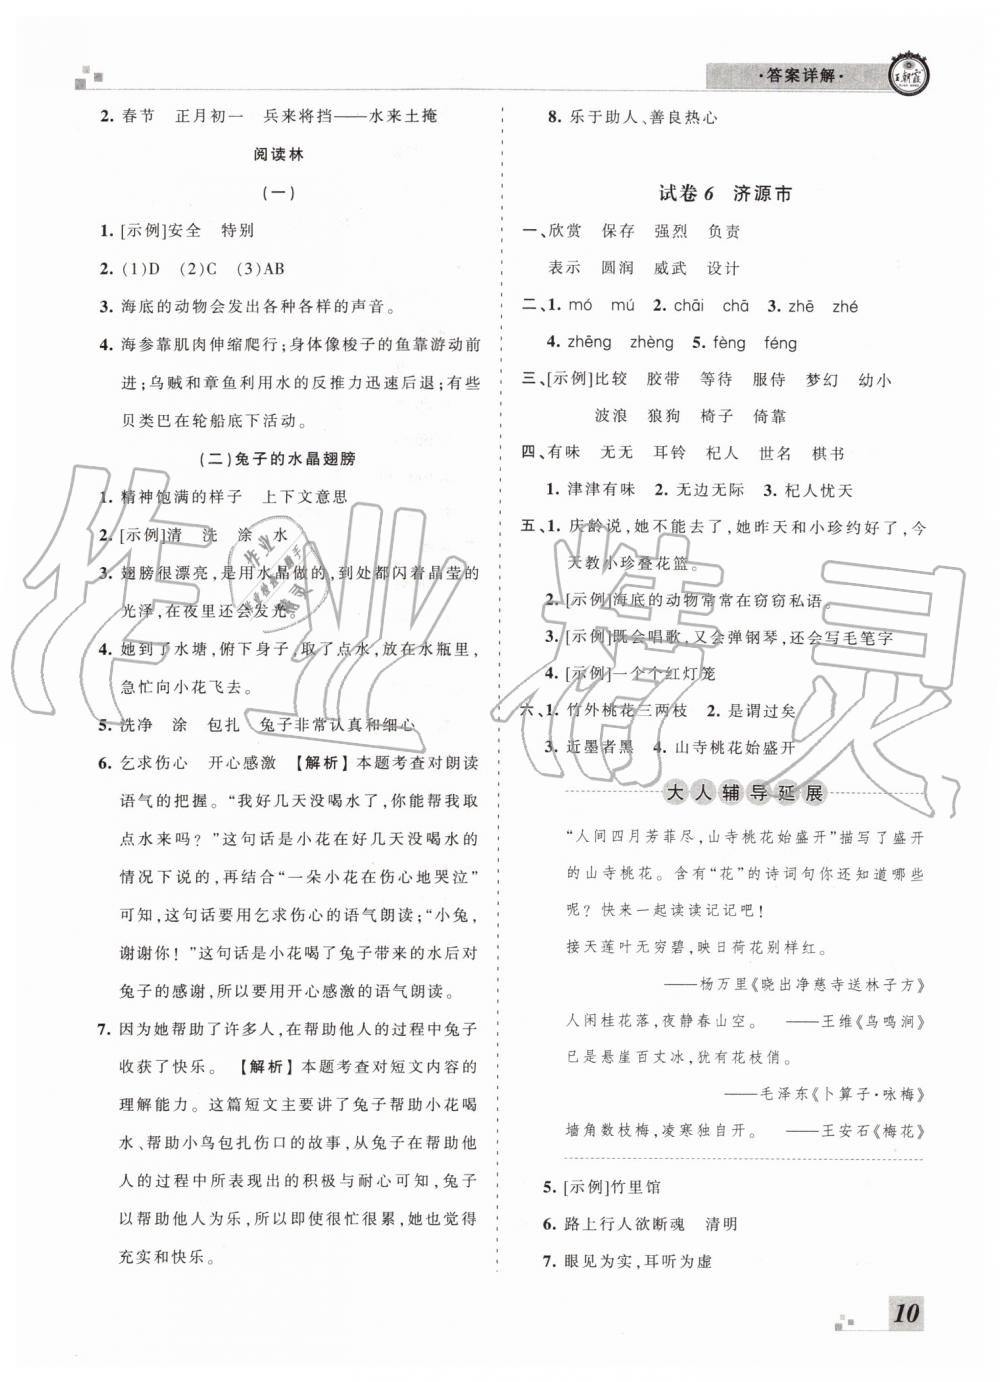 ·答案详解·
王朝霞
2. 春节　正月初一　兵来将挡——水来土掩
阅读林
(一)
1. [示例]安全　特别
2. (1)D　(2)C　(3)AB
3. 海底的动物会发出各种各样的声音。
4. 海参靠肌肉伸缩爬行;身体像梭子的鱼靠游动前
进;乌贼和章鱼利用水的反推力迅速后退;有些
贝类巴在轮船底下活动。
(二)兔子的水晶翅膀
1. 精神饱满的样子　上下文意思
2. [示例]清　洗　涂　水
3. 翅膀很漂亮,是用水晶做的,到处都闪着晶莹的
光泽,在夜里还会发光。
4. 她到了水塘,俯下身子,取了点水,放在水瓶里,
急忙向小花飞去。
5. 洗净　涂　包扎　兔子非常认真和细心
6. 乞求伤心　开心感激　【解析】本题考查对朗读
语气的把握。“我好几天没喝水了,你能帮我取
点水来吗？”这句话是小花在好几天没喝水的
情况下说的,再结合“一朵小花在伤心地哭泣”
可知,这句话要用乞求伤心的语气朗读;“小兔,
谢谢你！”这句话是小花喝了兔子带来的水后对
兔子的感谢,所以要用开心感激的语气朗读。
7. 因为她帮助了许多人,在帮助他人的过程中兔子
收获了快乐。　【解析】本题考查对短文内容的
理解能力。这篇短文主要讲了兔子帮助小花喝
水、帮助小鸟包扎伤口的故事,从兔子在帮助他
人的过程中所表现出的积极与耐心可知,兔子
以帮助他人为乐,所以即使很忙很累,她也觉得
充实和快乐。
8. 乐于助人、善良热心
试卷 6　济源市
一、欣赏　保存　强烈　负责
表示　圆润　威武　设计
二、1. mó　mú　2. chāi　chā　3. zhē　zhé
4. zhēng　zhèng　5. fèng　féng
三、[示例]比较　胶带　等待　服侍　梦幻　幼小
波浪　狼狗　椅子　倚靠
四、有味　无无　耳铃　杞人　世名　棋书
1. 津津有味　2. 无边无际　3. 杞人忧天
五、1. 庆龄说,她不能去了,她昨天和小珍约好了,今
天教小珍叠花篮。
2. [示例]海底的动物常常在窃窃私语。
3. [示例]既会唱歌,又会弹钢琴,还会写毛笔字
4. [示例]一个个红灯笼
六、1. 竹外桃花三两枝　2. 是谓过矣
3. 近墨者黑　4. 山寺桃花始盛开
大人辅导延展
“人间四月芳菲尽,山寺桃花始盛开”描写了盛开
的山寺桃花。含有“花”的诗词句你还知道哪些
呢？快来一起读读记记吧！
接天莲叶无穷碧,映日荷花别样红。
——杨万里《晓出净慈寺送林子方》
人闲桂花落,夜静春山空。　——王维《鸟鸣涧》
已是悬崖百丈冰,犹有花枝俏。
——毛泽东《卜算子·咏梅》
墙角数枝梅,凌寒独自开。　——王安石《梅花》
5. [示例]竹里馆
6. 路上行人欲断魂　清明
7. 眼见为实,耳听为虚
10
作业精灵